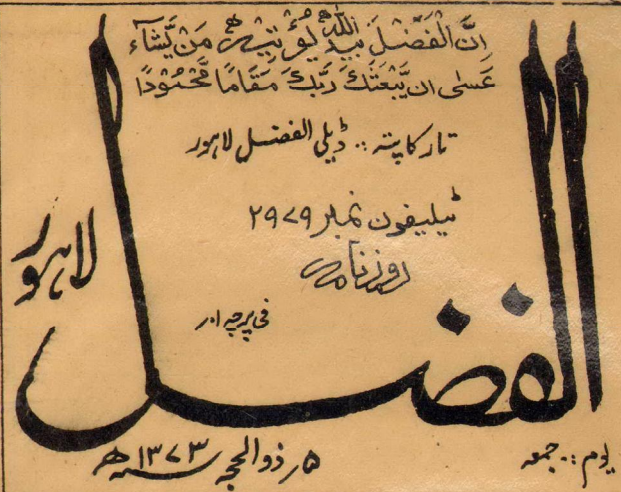 ان الفضل بید اللہ یؤتیہ من یشاء
عَسٰی ان یَّبْعَثَکَ رَبُّکَ مَقَامًا مَّحْمُوْدًا
تار کا پتہ :: ڈیلی الفضل لاہور
ٹیلیفون نمبر ۲۹۷۹
روزنامہ
لاہور
فی پرچہ ار
الفضل
یوم :: جمعہ
۵ ذوالحجہ سنہ ۱۳۷۳ھ